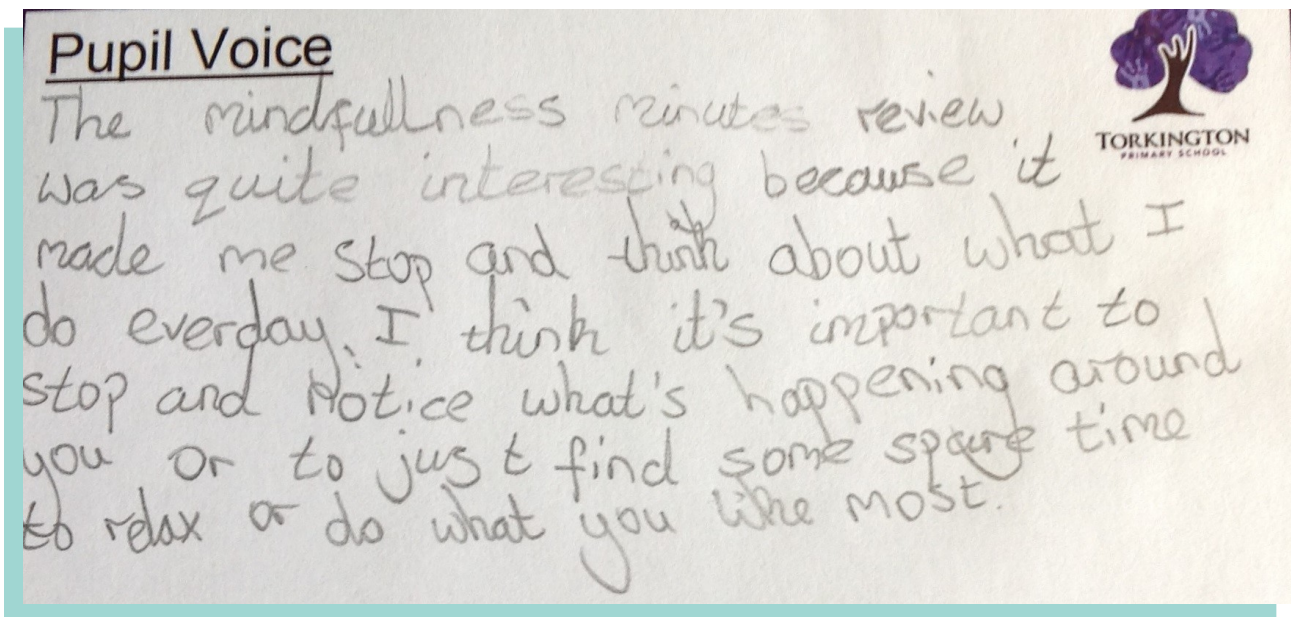 Pupil Voice
TORKINGTON
PRIMARY SCHOOL
The mindfullness minutes review
was quite interesting because it
made me stop and think about what I
do everday. I think it's important to
stop and Notice what's happening around
you or to just find some spare time
to relax or do what you like most.